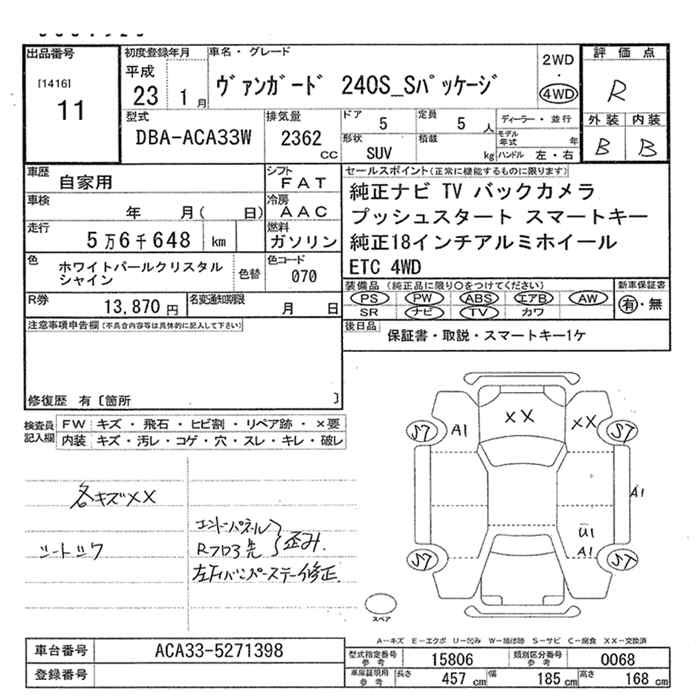 出品番号
[1416]
11
初度登録年月
平成
23 1 月
車名・グレード
ヴァンガード 240S_Sパッケージ
2WD
・
4WD
評価点
R
外装 内装
B B
型式
DBA-ACA33W
排気量
2362
cc
ドア
5
定員
5 人
形状
SUV
積載
kg
ディーラー・並行
モデル
年式 年
ハンドル 左・右
車歴
自家用
車検
年 月( 日)
走行
5万6千648 km
シフト
FAT
冷房
AAC
燃料
ガソリン
色
ホワイトパールクリスタル
シャイン
色替
色コード
070
R券
13,870 円
名変通知期限
月 日
セールスポイント(正常に機能するものに限ります)
純正ナビ TV バックカメラ
プッシュスタート スマートキー
純正18インチアルミホイール
ETC 4WD
装備品(純正品に限り〇をつけてください)
PS PW ABS エアB AW
SR ナビ TV カワ
新車保証書
有・無
後日品
保証書・取説・スマートキー1ケ
注意事項申告欄(不具合内容等は具体的に記入して下さい)
修復歴 有〔箇所 〕
検査員
記入欄
FW キズ・飛石・ヒビ割・リペア跡・×要
内装 キズ・汚レ・コゲ・穴・スレ・キレ・破レ
各キズXX
シートシワ
エントーパネル
Rフロア先
歪み
修正
ST A1 XX XX ST
A1
U1
ST A1 ST
スペア
A-キズ E-エクボ U-凹み W-補修跡 S-サビ C-腐食 XX-交換済
車台番号
ACA33-5271398
登録番号
型式指定番号
参考
15806
類別区分番号
参考
0068
車庫証明用
参考
長さ
457 cm
幅
185 cm
高さ
168 cm